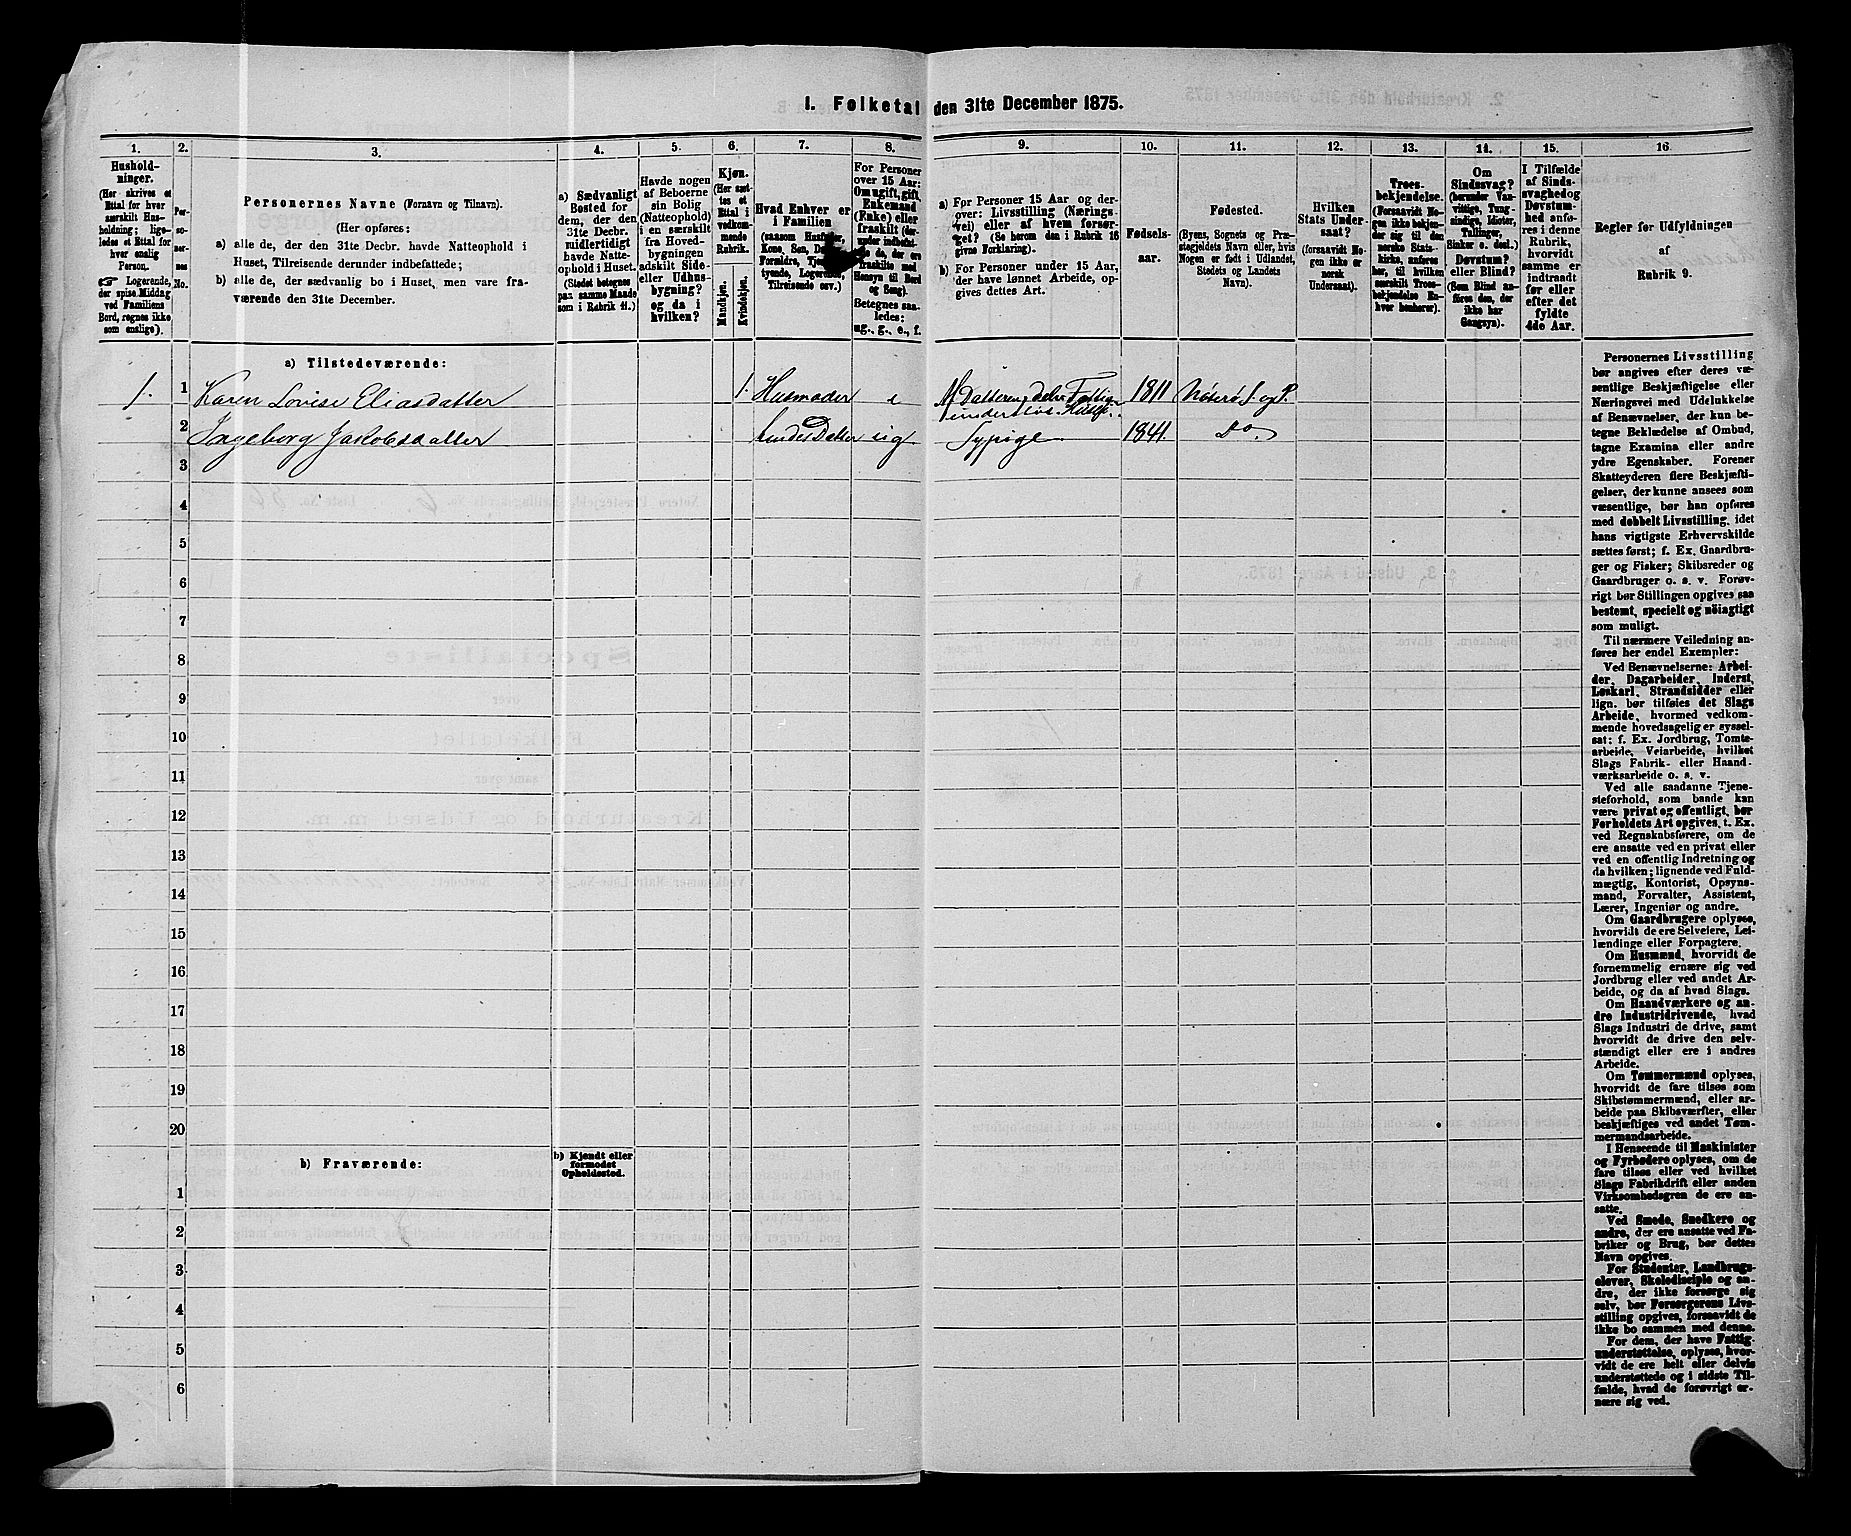 I. Folketal den 31te December 1875.
1. 2. 3. 4. 5. 6. 7. 8. 9. 10. 11. 12. 13. 14. 15. 16.
Hushold-
ninger.
(Her skrives et
Ettal for hver
særskilt Hus-
holdning; lige-
ledes et Ettal for
hver enslig
Person.
☞ Logerende,
der spise Middag
ved Familiens
Bord, regnes ikke
som enslige).
Per-
so-
ner-
nes
No.
Personernes Navne (Fornavn og Tilnavn).
(Her opføres:
a) alle de, der den 31te Decbr. havde Natteophold i
Huset, Tilreisende derunder indbefattede;
b) alle de, der sædvanlig bo i Huset, men vare fra-
værende den 31te December.
a) Sædvanligt
Bosted for
dem, der den
31te Decbr.
midlertidigt
havde Natte-
ophold i Huset.
(Stedet betegnes
paa samme Maade
som i Rubrik 11.)
Havde nogen
af Beboerne
sin Bolig
(Natteophold)
i en særskilt
fra Hoved-
bygningen
adskilt Side-
eller Udhus-
bygning?
og da i
hvilken?
Kjøn.
(Her sæt-
tes et
Ettal i
vedkom-
mende
Rubrik.
Mandkjøn.
Kvindekjøn.
Hvad Enhver er
i Familien
(saasom Husfa
Kone, Søn, Da
Forældre, Tje
tyende, Logere
Tilreisende osv.)
For Personer
over 15 Aar:
Om ugift, gift,
Enkemand
(Enke) eller
fraskilt (der-
under indbefat-
de, der ere
fraskilte med
Hensyn til Bord
og Seng).
Betegnes saa-
ledes:
ug., g., e., f.
a) For Personer 15 Aar og der-
over: Livsstilling (Nærings-
vei) eller af hvem forsør-
get? (Se herom den i Rubrik 16
givne Forklaring).
b) For Personer under 15 Aar,
der have lønnet Arbeide, op-
gives dettes Art.
Fødsels-
aar.
Fødested.
(Byens, Sognets og Præ-
stegjeldets Navn eller, hvis
Nogen er født i Udlandet,
Stedets og Landets
Navn).
Hvilken
Stats Under-
saat?
(forsaavidt No-
gen ikke er
norsk
Undersaat).
Troes-
bekjendelse.
(Forsaavidt No-
gen ikke bekjen-
der sig til den
norske Stats-
kirke, anføres
her, til hvilken
særskilt Troes-
bekjendelse En-
hver henhører).
Om
Sindssvag?
(herunder Van-
vittige, Tung-
sindige, Idioter,
Tullinger,
Sinker o. desl.)
Døvstum?
eller Blind?
(Som Blind an-
føres den, der
ikke har
Gangsyn).
I Tilfælde
af Sinds-
svaghed og
Døvstum-
hed anfø-
res i denne
Rubrik,
hvorvidt
samme er
indtraadt
før eller
efter det
fyldte
4de Aar.
Regler før Udfyldningen
af
Rubrik 9.
a) Tilstedeværende:
1. 1 Karen Lovise Eliasdatter 1. Husmoder e Datteren, delv. Fattig- 1811 Nøterø S. og P.
2 Ingeborg Jakobsdatter hendes Datter ug Sypige 1841. Do.
3
4
5
6
7
8
9
10
11
12
13
14
15
16
17
18
19
20
b) Fraværende:
b) Kjendt eller
formodet
Opholdssted.
1
2
3
4
5
6
Personernes Livsstilling
bør angives efter deres væ-
sentlige Beskjæftigelse eller
Næringsvei med Udelukkelse
af Benævnelser, der kun be-
tegne Beklædelse af Ombud,
tagne Examina eller andre
ydre Egenskaber. Forener
Skatteyderen flere Beskjæfti-
gelser, der kunne ansees som
væsentlige, bør han opføres
med dobbelt Livsstilling, idet
hans vigtigste Erhvervskilde
sættes først; f. Ex. Gaardbru-
ger og Fisker; Skibsreder og
Gaardbruger o. s. v. Forøv-
rigt bør Stillingen opgives saa
bestemt, specielt og nøiagtigt
som muligt.
Til nærmere Veiledning an-
føres her endel Exempler:
Ved Benævnelserne: Arbei-
der, Dagarbeider, Inderst,
Løskarl, Strandsidder eller
lign. bør tilføies det Slags
Arbeide, hvormed vedkom-
mende hovedsagelig er syssel-
sat: f. Ex. Jordbrug, Tomte-
arbeide, Veiarbeide, hvilket
Slags Fabrik- eller Haand-
værksarbeide o. s. v.
Ved alle saadanne Tjene-
steforhold, som baade kan
være privat og offentligt, bør
Forholdets Art opgives, t. Ex.
ved Regnskabsførere, om de
ere ansatte ved en privat eller
ved en offentlig Indretning og
da hvilken; lignende ved Fuld-
mægtig, Kontorist, Opsyns-
mand, Forvalter, Assistent,
Lærer, Ingeniør og andre.
Om Gaardbrugere oplyses,
hvorvidt de ere Selveiere, Lei-
lændinge eller Forpagtere.
Om Husmænd, hvorvidt de
fornemmelig ernære sig ved
Jordbrug eller ved andet Ar-
beide, og da af hvad Slags.
Om Haandværkere og an-
dre Industridrivende, hvad
Slags Industri de drive, samt
hvorvidt de drive den selv-
stændigt eller ere i andres
Arbeide.
Om Tømmermænd oplyses,
hvorvidt de fare tilsøs som
Skibstømmermænd, eller ar-
beide paa Skibsværfter, eller
beskjæftiges ved andet Tøm-
mermandsarbeide.
I Henseende til Maskinister
og Fyrbødere oplyses, om de
fare tilsøs eller ved hvilket
Slags Fabrikdrift eller anden
Virksomhedsgren de ere an-
satte.
Ved Smede, Snedkere og
andre, der ere ansatte ved Fa-
briker og Brug, bør dettes
Navn opgives.
For Studenter, Landbrugs-
elever, Skoledisciple og an-
dre, der ikke forsørge sig
selv, bør Forsørgerens Livs-
stilling opgives, forsaavidt de
ikke bo sammen med denne.
For dem, der have Fattig-
understøttelse, oplyses, hvor-
vidt de ere helt eller delvis
understøttede og i sidste Til-
fælde, hvad de forøvrigt er-
nære sig ved.